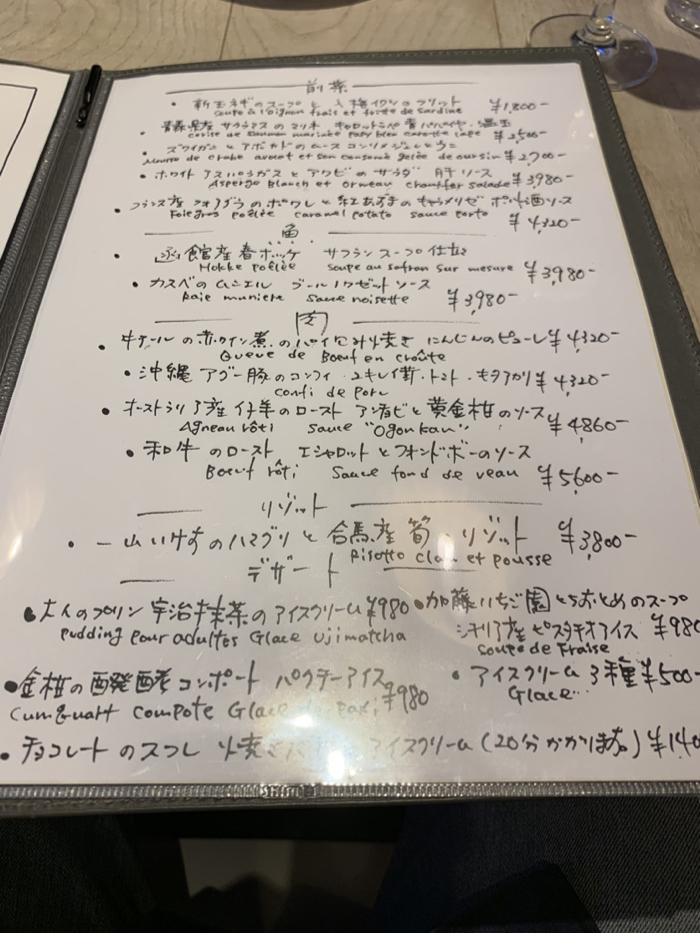 前菜
・新玉ネギのスープと 入梅イワシのフリット ¥1,800-
soupe à l'oignon frais et fritte de sardine
青森県産 サクラマスのマリネ キャロットラペ 青パパイヤ
de Saumon marinée Papy bleu carotte rapé ¥2,500-
・ズワイガニとアボカドのムース コンソメジュレとウニ
mousse de crabe avocat et son consomé gelée de oursin ¥2,700-
・ホワイトアスパラガスとアワビのサラダ 肝ソース
Asperge blanch et Ormeau chauffer salade ¥3,980-
・フランス産 フォアグラのポワレと紅あずまのキャラメリゼ ポルト酒ソース
Foiegras poêlée caramel potato sauce porto ¥4,320-
魚
・函館産春ホッケ サフランスープ仕立
Hokke poêlée soupe au safron sur mesure ¥3,980-
・カスベのムニエル ブールノワゼットソース
Raie muniere sauce noisette ¥3,980-
肉
・牛テールの赤ワイン煮のパイ包み焼き にんじんのピューレ ¥4,320-
Queue de Boeuf en croûte
・沖縄アグー豚のコンフィ ・トマト・キタアカリ ¥4,320-
confi de porc
・オーストラリア産仔羊のロースト アンチョビと黄金柑のソース ¥4,860-
Agneau rôti sauce "Ogon kan"
・和牛のロースト エシャロットとフォンドボーのソース
Boeuf rôti Sauce fond de veau ¥5,600-
リゾット
・一山いけすのハマグリと合馬産筍・リゾット ¥3,800-
Risotto clam et pousse
デザート
・大人のプリン 宇治抹茶のアイスクリーム ¥980
pudding pour adultes Glace ujimatcha
・加藤いちご園とちおとめのスープ
シチリア産ピスタチオアイス ¥980
soupe de Fraise
・金柑の コンポート パクチーアイス ¥980
Cumquart compote Glace
・アイスクリーム 3種 ¥500-
Glace
・チョコレートのスフレ アイスクリーム(20分かかります。)